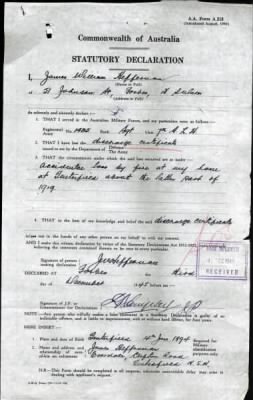 A.A. Form A.213
Commonwealth of Australia
STATUTORY DECLARATION
I, James William Heffernan
(Name in Full)
of 21 Johnson St, Forbes, N
(Address in Full)
do solemnly and sincerely declare
1. THAT I served in the Australian Military Forces, and my particulars were as follows:—
Regimental No. Sgt 7th A.L.H.
2. THAT I have lost the discharge certificate
issued to me by the Department of Defence
The Army
3. THAT the circumstances under which the said loss occurred are as under:—
accidental loss by fire at my home
at Tenterfield about the latter part of
1919.
4. THAT to the best of my knowledge and belief the said discharge certificate
is not in the hands of any other person on my behalf or with my consent.
AND I make this solemn declaration by virtue of the Statutory Declarations Act
believing the statements contained therein to be true in every particular.
Signature of person making declaration J W Heffernan
DECLARED AT Forbes the third
December 1945 before me
Signature of J.P. or
Commissioner for Declarations J.P.
RECEIVED
NOTE.—Any person who wilfully makes a false statement in a Statutory Declaration is guilty of an
indictable offence, and is liable to imprisonment, with or without hard labour, for four years.
HERE INSERT:—
Date and place of Birth Tenterfield 4th Jan 1894
Name and relationship of next of kin James Heffernan
Tenterfield N.S.W.
Required for Military identification purposes only.
All particulars to be completed in all respects, otherwise unavoidable delay may occur in
dealing with applicant's request.